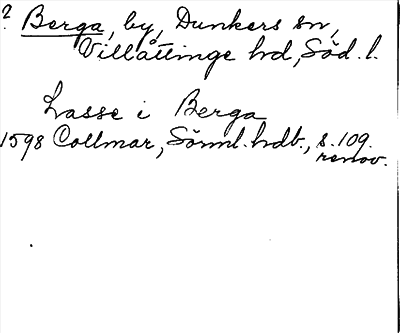 ? Berga, by, Dunkers sn,
Villåttinge hd, Söd. l.
Lasse i Berga
1598 Collmar, Sörml. hdb., s. 109.
renov.